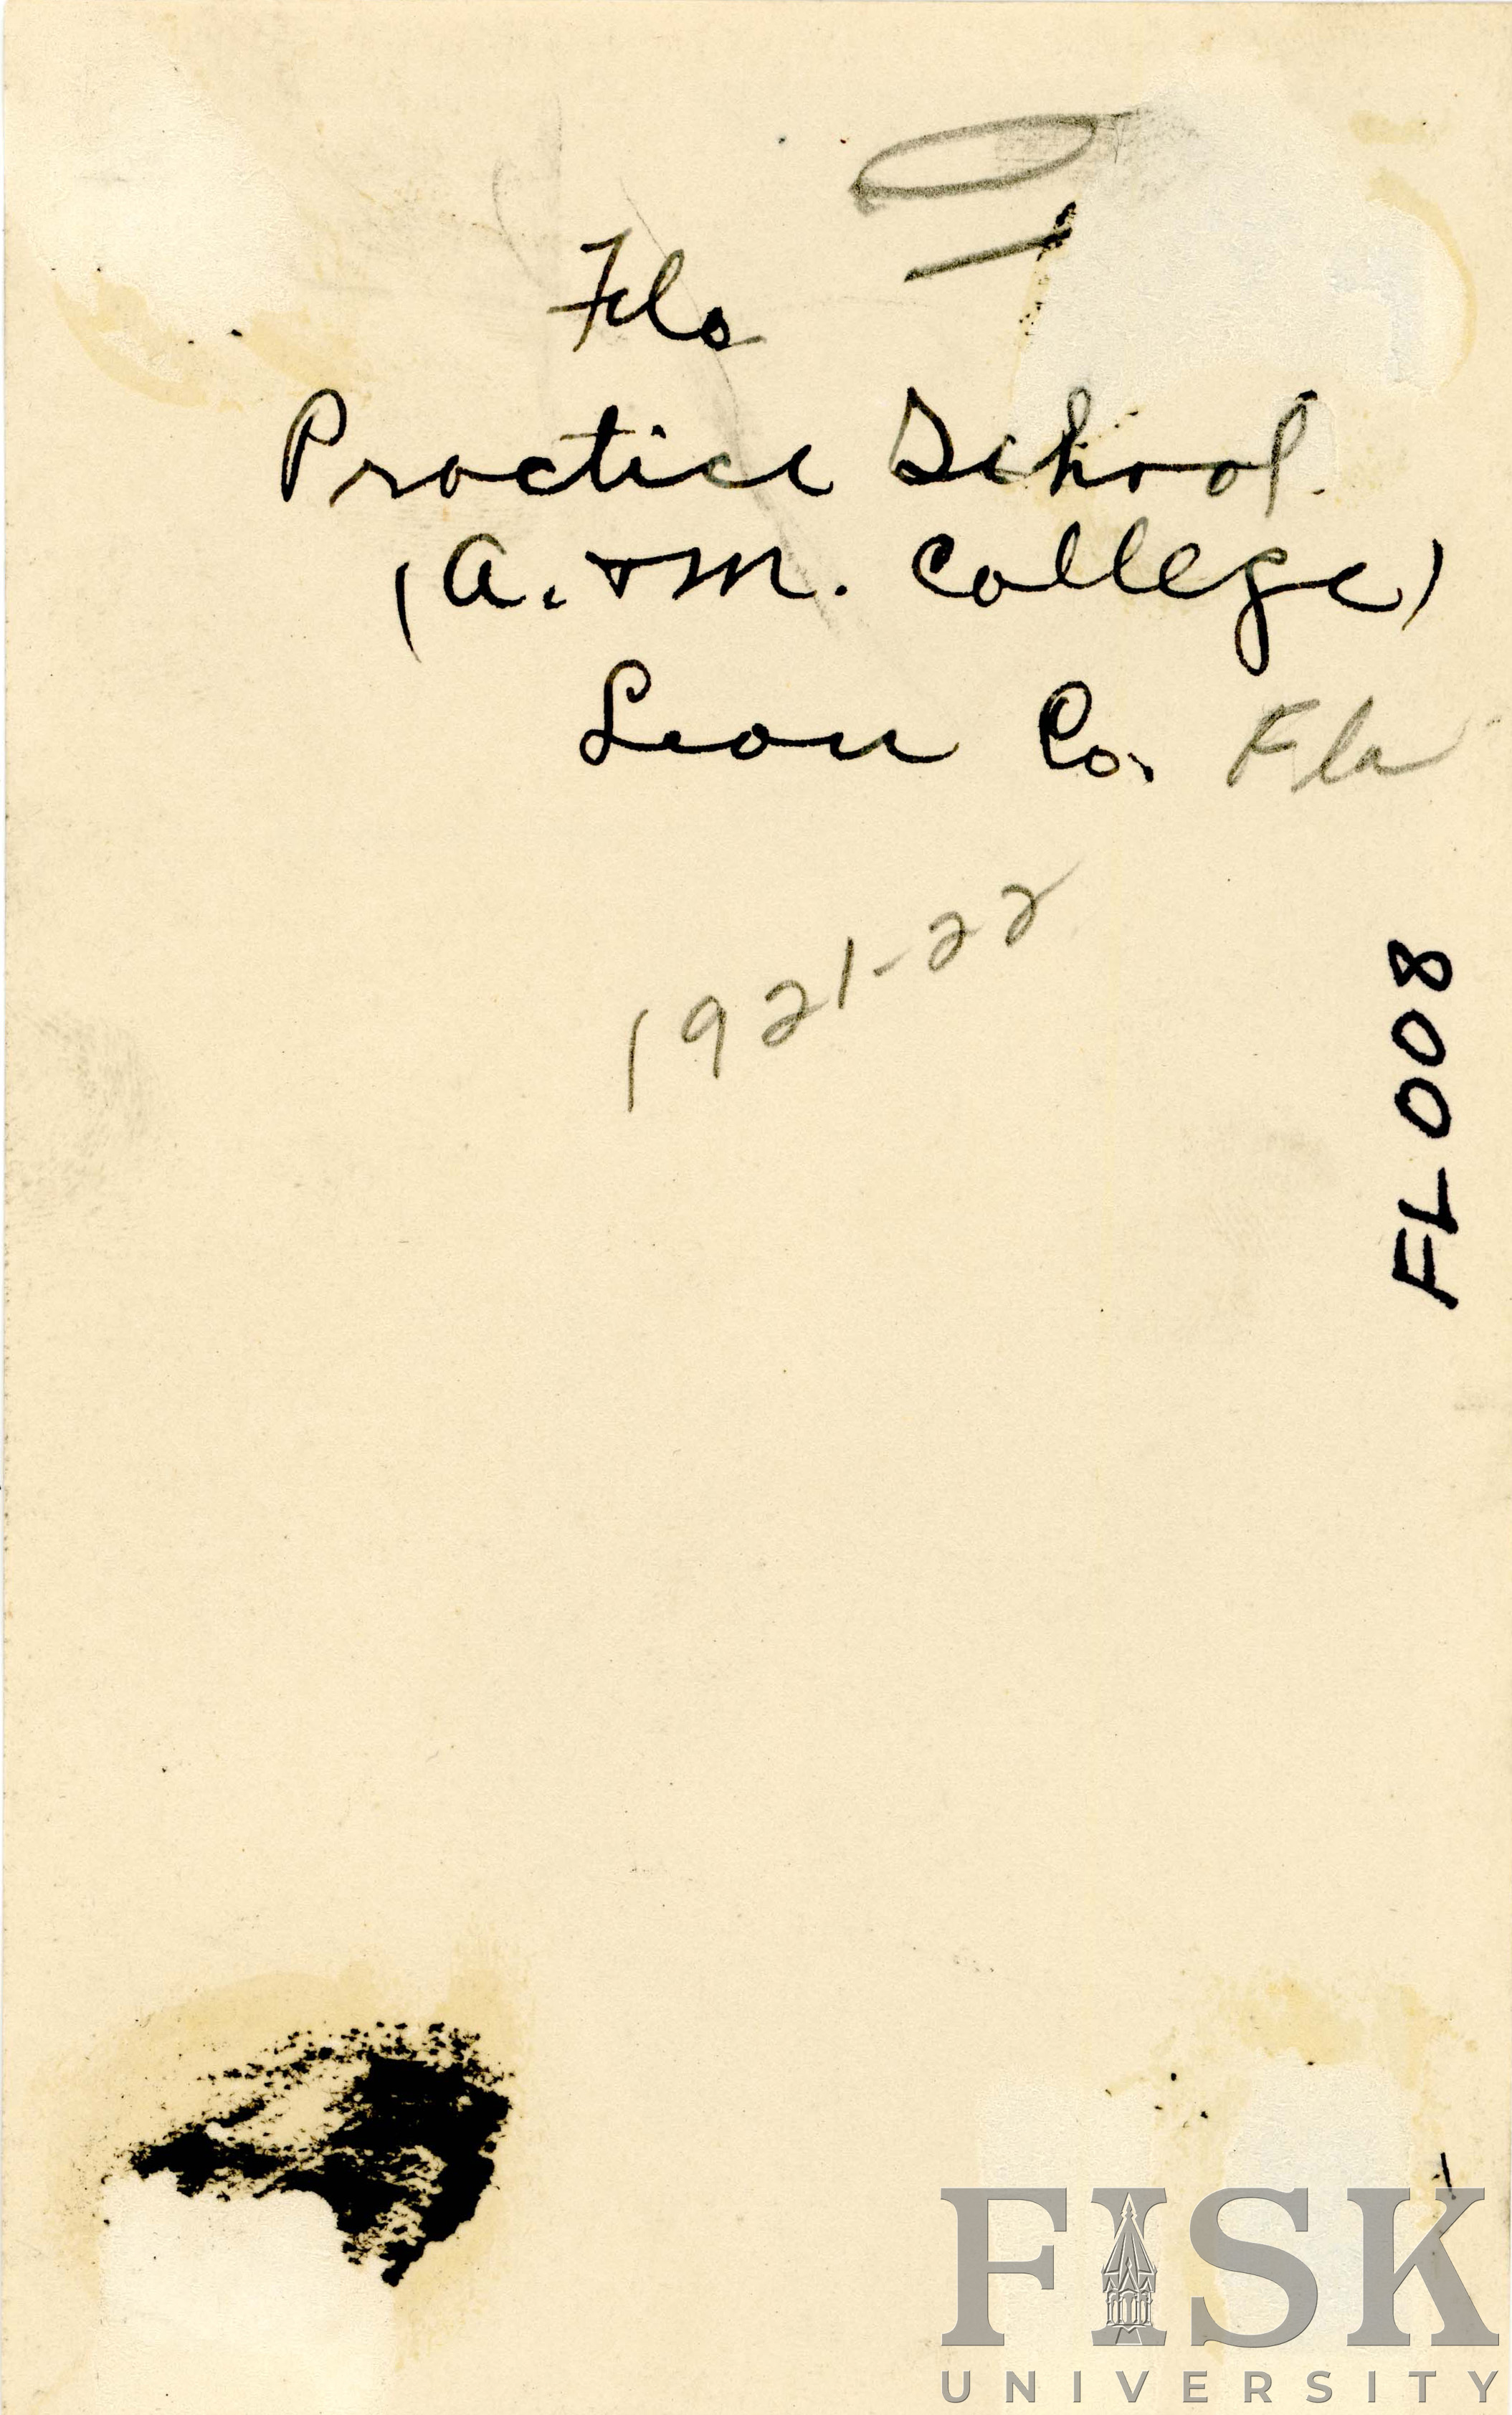 Fla
Practice School.
(A. & M. College)
Leon Co. Fla
1921-22
FL008
FISK
UNIVERSITY